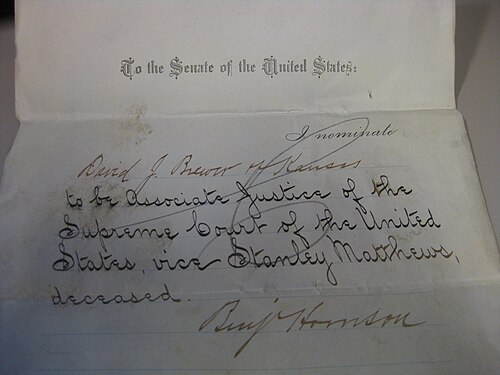 To the Senate of the United States:
I nominate
David J. Brewer of Kansas
to be Associate Justice of the
Supreme Court of the United
States, vice Stanley Matthews,
deceased.
Benj Harrison